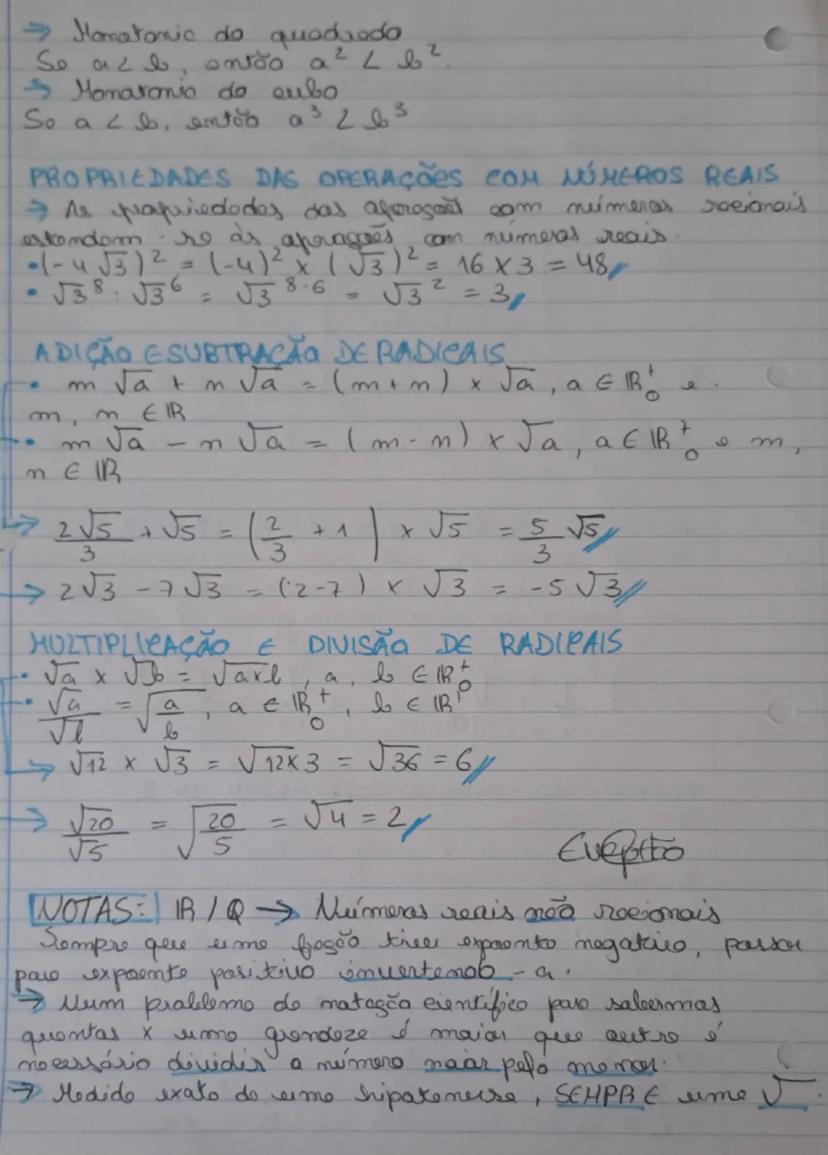 → Monotonia do quadrado
Se a < b, então a² < b².
→ Monotonia do cubo
Se a < b, então a³ < b³
PROPRIEDADES DAS OPERAÇÕES COM NÚMEROS REAIS
→ As propriedades das operações com números racionais
estendem-se às operações com números reais.
• (-4√3)² = (-4)² × (√3)² = 16 × 3 = 48
• √3⁸ : √3⁶ = √3⁸⁻⁶ = √3² = 3
ADIÇÃO E SUBTRAÇÃO DE RADICAIS
• m√a + n√a = (m+n) × √a, a ∈ ℝ₀⁺ e
m, n ∈ ℝ
• m√a - n√a = (m-n) × √a, a ∈ ℝ₀⁺ e m,
n ∈ ℝ
→ 2√5/3 + √5 = (2/3 + 1) × √5 = 5/3 √5
→ 2√3 - 7√3 = (2-7) × √3 = -5√3
MULTIPLICAÇÃO E DIVISÃO DE RADICAIS
• √a × √b = √a×b, a, b ∈ ℝ₀⁺
• √a/√b = √a/b, a ∈ ℝ₀⁺, b ∈ ℝ⁺
→ √12 × √3 = √12×3 = √36 = 6
→ √20/√5 = √20/5 = √4 = 2
NOTAS: ℝ/ℚ → Números reais não racionais
Sempre que uma fração tiver expoente negativo, passar
para expoente positivo invertendo-a.
→ Num problema de notação científica para sabermos
quantas x uma grandeza é maior que outra é
necessário dividir o número maior pelo menor.
→ Medida exata de uma hipotenusa, SEMPRE uma √.